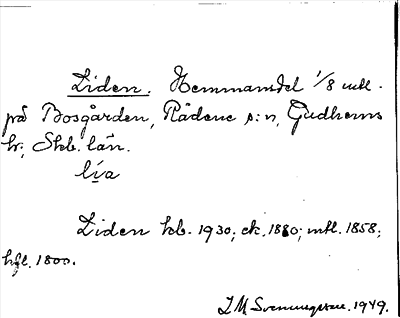 Liden. Hemmansdel 1/8 mtl.
på Bosgården, Rådene s:n, Gudhems
hr; Skb. län.
lı́a
Liden kb. 1930; ek. 1880; mtl. 1858;
hfl. 1800.
1949.